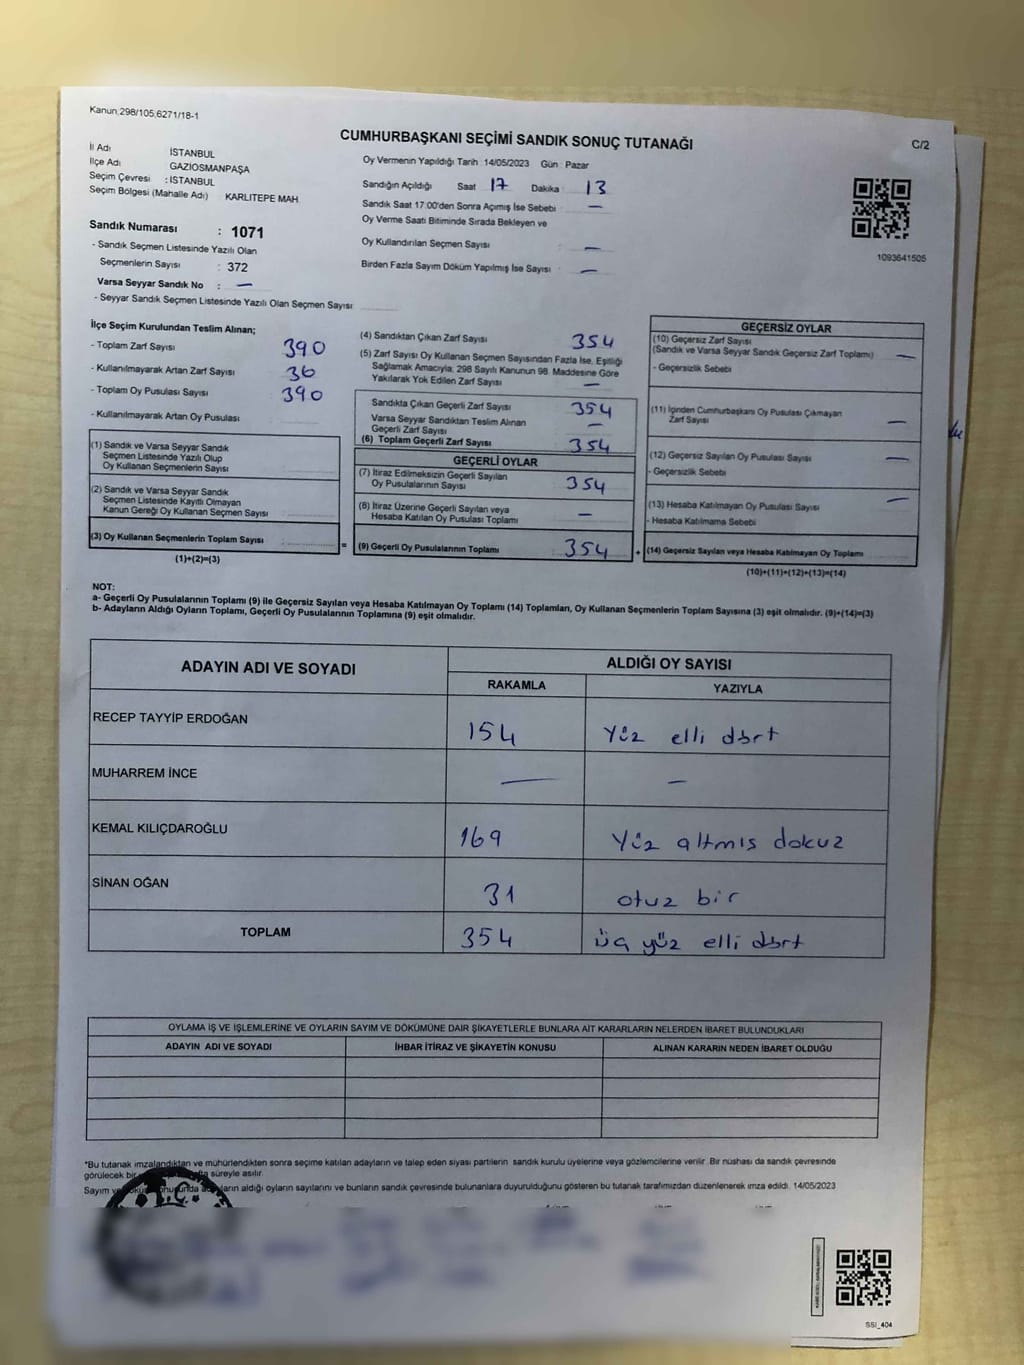 Kanun;298/105;6271/18-1
CUMHURBAŞKANI SEÇİMİ SANDIK SONUÇ TUTANAĞI
C/2
İl Adı İSTANBUL
İlçe Adı GAZİOSMANPAŞA
Seçim Çevresi : İSTANBUL
Seçim Bölgesi (Mahalle Adı) KARLITEPE MAH.
Oy Vermenin Yapıldığı Tarih :14/05/2023 Gün : Pazar
Sandığın Açıldığı Saat 17 Dakika : 13
Sandık Saat 17:00'den Sonra Açımış İse Sebebi : —
Oy Verme Saati Bitiminde Sırada Bekleyen ve
Oy Kullandırılan Seçmen Sayısı : —
Birden Fazla Sayım Döküm Yapılmış İse Sayısı : —
1093641505
Sandık Numarası : 1071
- Sandık Seçmen Listesinde Yazılı Olan
Seçmenlerin Sayısı : 372
Varsa Seyyar Sandık No : —
- Seyyar Sandık Seçmen Listesinde Yazılı Olan Seçmen Sayısı
İlçe Seçim Kurulundan Teslim Alınan;
- Toplam Zarf Sayısı 390
- Kullanılmayarak Artan Zarf Sayısı 36
- Toplam Oy Pusulası Sayısı 390
- Kullanılmayarak Artan Oy Pusulası
(1) Sandık ve Varsa Seyyar Sandık
Seçmen Listesinde Yazılı Olup
Oy Kullanan Seçmenlerin Sayısı
(2) Sandık ve Varsa Seyyar Sandık
Seçmen Listesinde Kayıtlı Olmayan
Kanun Gereği Oy Kullanan Seçmen Sayısı
(3) Oy Kullanan Seçmenlerin Toplam Sayısı
(1)+(2)=(3)
=
(4) Sandıktan Çıkan Zarf Sayısı 354
(5) Zarf Sayısı Oy Kullanan Seçmen Sayısından Fazla İse, Eşitliği
Sağlamak Amacıyla, 298 Sayılı Kanunun 98. Maddesine Göre
Yakılarak Yok Edilen Zarf Sayısı —
Sandıkta Çıkan Geçerli Zarf Sayısı 354
Varsa Seyyar Sandıktan Teslim Alınan
Geçerli Zarf Sayısı —
(6) Toplam Geçerli Zarf Sayısı 354
GEÇERLİ OYLAR
(7) İtiraz Edilmeksizin Geçerli Sayılan
Oy Pusulalarının Sayısı 354
(8) İtiraz Üzerine Geçerli Sayılan veya
Hesaba Katılan Oy Pusulası Toplamı —
(9) Geçerli Oy Pusulalarının Toplamı 354
+
GEÇERSİZ OYLAR
(10) Geçersiz Zarf Sayısı
(Sandık ve Varsa Seyyar Sandık Geçersiz Zarf Toplamı) —
- Geçersizlik Sebebi
(11) İçinden Cumhurbaşkanı Oy Pusulası Çıkmayan
Zarf Sayısı —
(12) Geçersiz Sayılan Oy Pusulası Sayısı —
- Geçersizlik Sebebi
(13) Hesaba Katılmayan Oy Pusulası Sayısı —
- Hesaba Katılmama Sebebi
(14) Geçersiz Sayılan veya Hesaba Katılmayan Oy Toplamı
(10)+(11)+(12)+(13)=(14)
NOT:
a- Geçerli Oy Pusulalarının Toplamı (9) ile Geçersiz Sayılan veya Hesaba Katılmayan Oy Toplamı (14) Toplamları, Oy Kullanan Seçmenlerin Toplam Sayısına (3) eşit olmalıdır. (9)+(14)=(3)
b- Adayların Aldığı Oyların Toplamı, Geçerli Oy Pusulalarının Toplamına (9) eşit olmalıdır.
ADAYIN ADI VE SOYADI ALDIĞI OY SAYISI
RAKAMLA YAZIYLA
RECEP TAYYİP ERDOĞAN 154 Yüz elli dört
MUHARREM İNCE — —
KEMAL KILIÇDAROĞLU 169 Yüz altmış dokuz
SİNAN OĞAN 31 otuz bir
TOPLAM 354 üç yüz elli dört
OYLAMA İŞ VE İŞLEMLERİNE VE OYLARIN SAYIM VE DÖKÜMÜNE DAİR ŞİKAYETLERLE BUNLARA AİT KARARLARIN NELERDEN İBARET BULUNDUKLARI
ADAYIN ADI VE SOYADI İHBAR İTİRAZ VE ŞİKAYETİN KONUSU ALINAN KARARIN NEDEN İBARET OLDUĞU
*Bu tutanak imzalandıktan ve mühürlendikten sonra seçime katılan adayların ve talep eden siyasi partilerin sandık kurulu üyelerine veya gözlemcilerine verilir. Bir nüshası da sandık çevresinde
görülecek bir süreyle asılır.
Sayım aldığı oyların sayılarını ve bunların sandık çevresinde bulunanlara duyurulduğunu gösteren bu tutanak tarafımızdan düzenlenerek imza edildi. 14/05/2023
T.C.
SSI_404